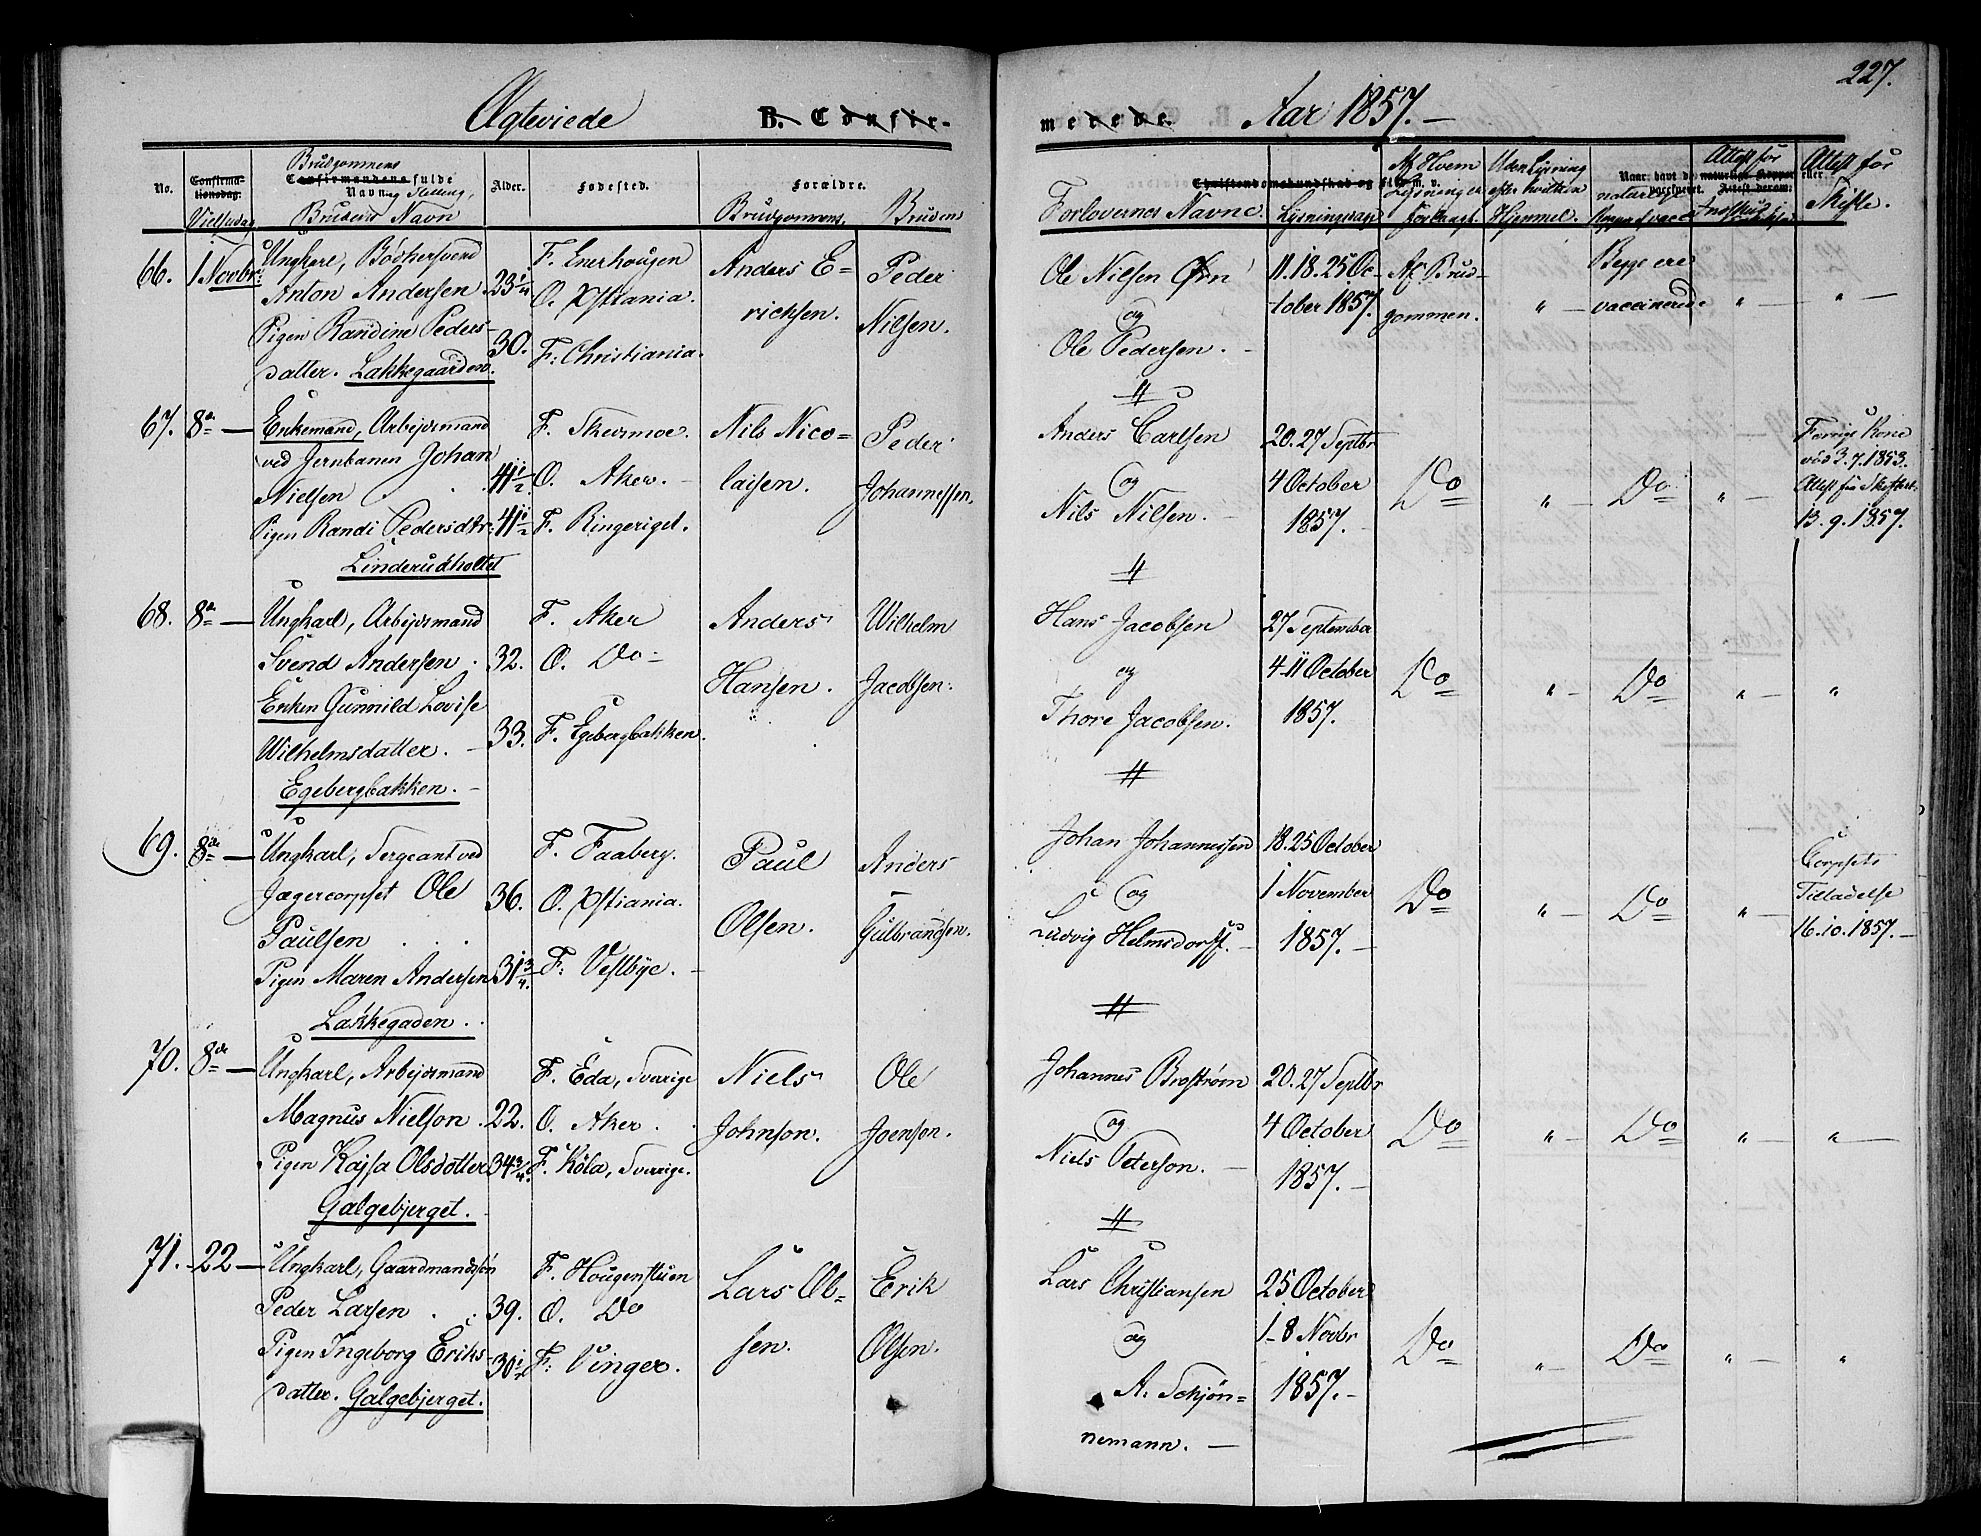 227.
Ægteviede B. Confir-
merede. Aar 1857.-
No. Confirma-tionsdag. Vielsesdag Brudgommens Confirmandens fulde Navn og Stilling, Brudens Navn Alder. Fødested. Forældre. Brudgommens, Brudens
Forlovernes Navne Christendomskundskab og Flid m. v. Lysningsdage Af Hvem Lysningen forlangt Uden Lysning efter hvilken Hjemmel. Naar havt de naturlige Kopper eller vaccineret. Attest for Skifte.
66. 1 Novbr: Ungkarl, Bødkersvend
Anton Andersen 23
Pigen Randine Peders-
datter. Lakkegaarden. 30.
F. Enerhougen
O. Xstiania.
F: Christiania.
Anders E-
richsen.
Peder
Nilsen.
Ole Nilsen Ørn
og
Ole Pedersen. -
11. 18. 25 Oc-
tober 1857.
Af Brud-
gommen.
" -
Begge ere
vaccinerede
" -
" -
67. 8de — Enkemand, Arbejdsmand
ved Jernbanen Johan
Nielsen . . 41 1/2
Pigen Randi Pedersdtr: 41 1/2
Linderudholtet
F. Skedsmoe.
O. Aker. -
F. Ringeriget.
Nils Nico-
laisen.
Peder
Johannessen.
Anders Carlsen
og
Nils Nilsen. -
20. 27 Septbr
4 October
1857. -
Do
" -
Do
" -
Forrige Kone
død 3.7.1853.
Attest fra Skifteret.
13. 9. 1857.
68. 8de — Ungkarl, Arbejdsmand
Svend Andersen . 32.
Enken Gunnild Lovise
Wilhelmsdatter. - 33.
Egebergbakken. -
F. Aker
O. Do -
F. Egebergbakken.
Anders
Hansen.
Wilhelm
Jacobsen.
Hans Jacobsen
og
Thore Jacobsen.
27 September
4-11 October
1857.
Do
" -
Do
" -
"
69. 8de — Ungkarl, Sergeant ved
Jægercorpset Ole 36.
Paulsen . . .
Pigen Maren Andersen 31 3/4.
Lakkegaden. .
F. Faaberg.
O. Xstiania.
F: Vestbye. -
Paul
Olsen.
Anders
Gulbrandsen.
Johan Johannessen
og
Ludvig Helmsdorff. -
18. 25 October
1 November
1857. -
Do
" -
Do
" -
Corpsets
Tilladelse
16. 10. 1857. -
70. 8de — Ungkarl, Arbejdsmand
Magnus Nielson . 22.
Pigen Kajsa Olsdotter 34 3/4.
Galgebjerget. -
F. Eda, Sverige
O. Aker. .
F. Köla, Sverige.
Niels
Johnson.
Ole
Joenson.
Johannes Broström
og
Niels Peterson. -
20. 27 Septbr
4 October
1857. -
Do
" -
Do
" -
" -
71. -22 — Ungkarl, Gaardmandssøn
Peder Larsen . . 39.
Pigen Ingeborg Eriks-
datter. Galgebjerget. 30 1/2
F. Hougenstuen
O. Do
F: Vinger.
Lars Ol-
sen.
Erik
Olsen.
Lars Christiansen
og
A. Schjøn-
nemann. -
25 October
1-8 Novbr
1857. -
Do
" -
Do
" -
"